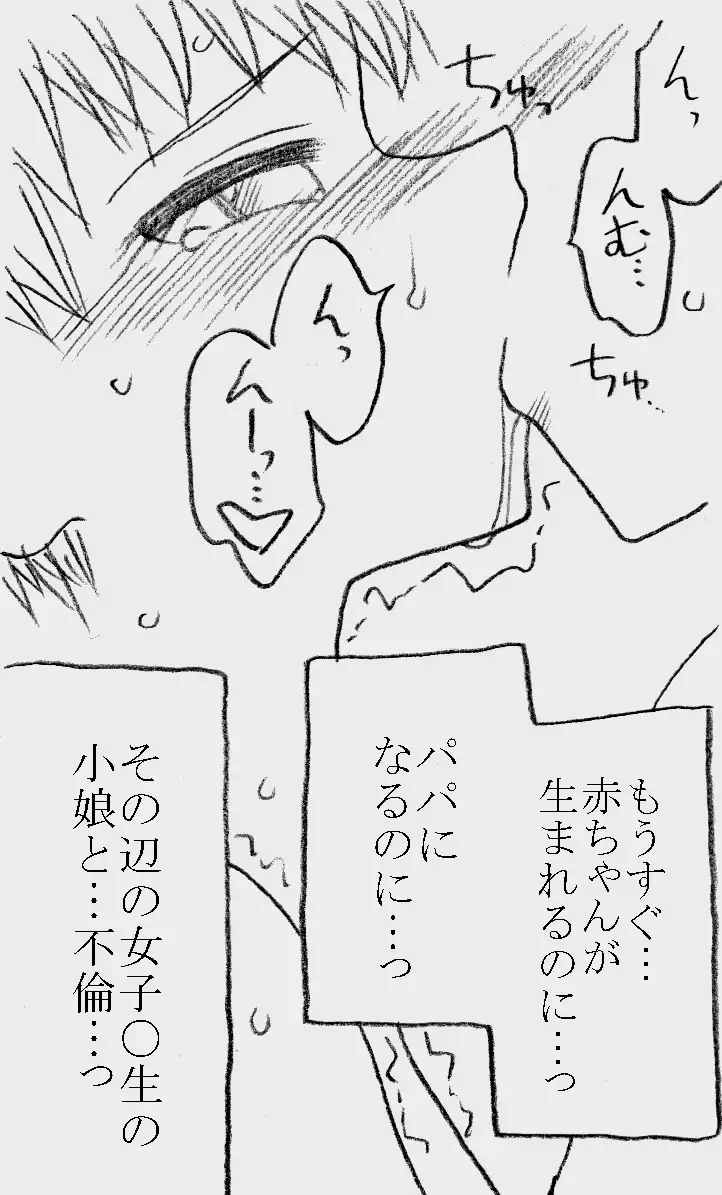 んっ
んむ…
ちゅっ
ちゅ…
んっ
んーっ…♡
もうすぐ…
赤ちゃんが
生まれるのに…っ
パパに
なるのに…っ
その辺の女子〇生の
小娘と…不倫…っ